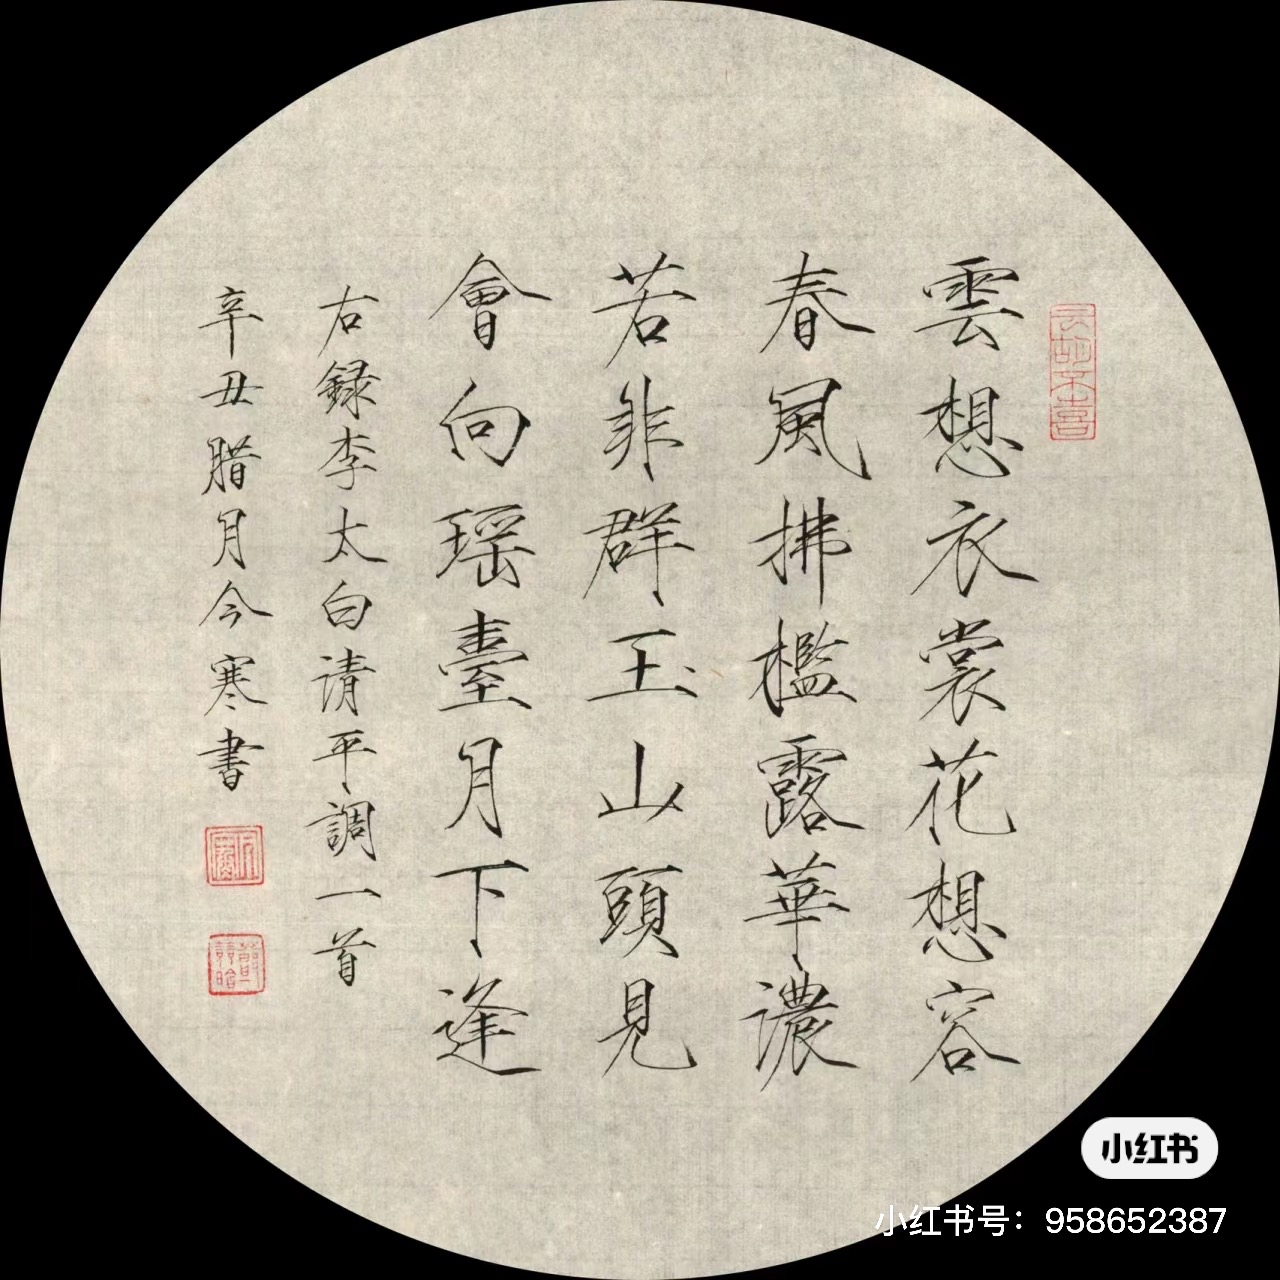 雲想衣裳花想容
春風拂檻露華濃
若非群玉山頭見
會向瑶臺月下逢
右録李太白请平調一首
辛丑腊月今寒書
小红书
小红书号：958652387